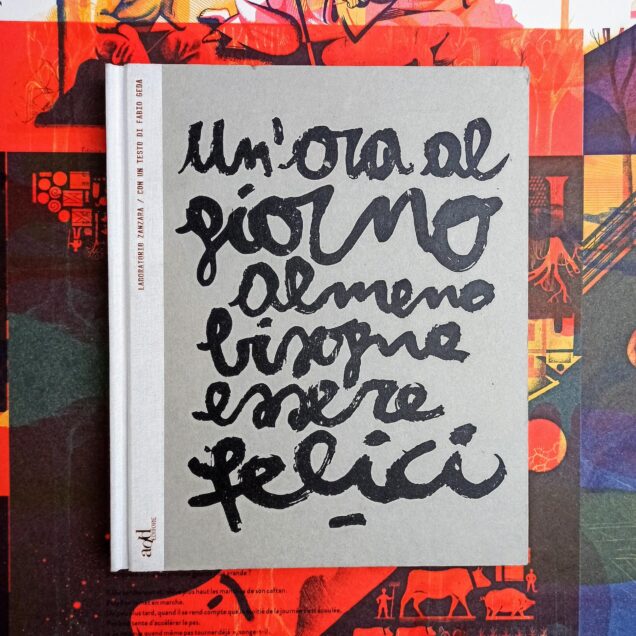 LABORATORIO ZANZARA / CON UN TESTO DI FABIO GEDA
Un'ora al
giorno
almeno
bisogna
essere
felici
add
EDITORE
grande ?
plus haut les manches de son caftan.
en marche.
plus tard, quand il se rend compte que la moitié de la journée s'est écoulée,
tente d'accélérer le pas.
quand même pas tourner déjà », songe-t-il.